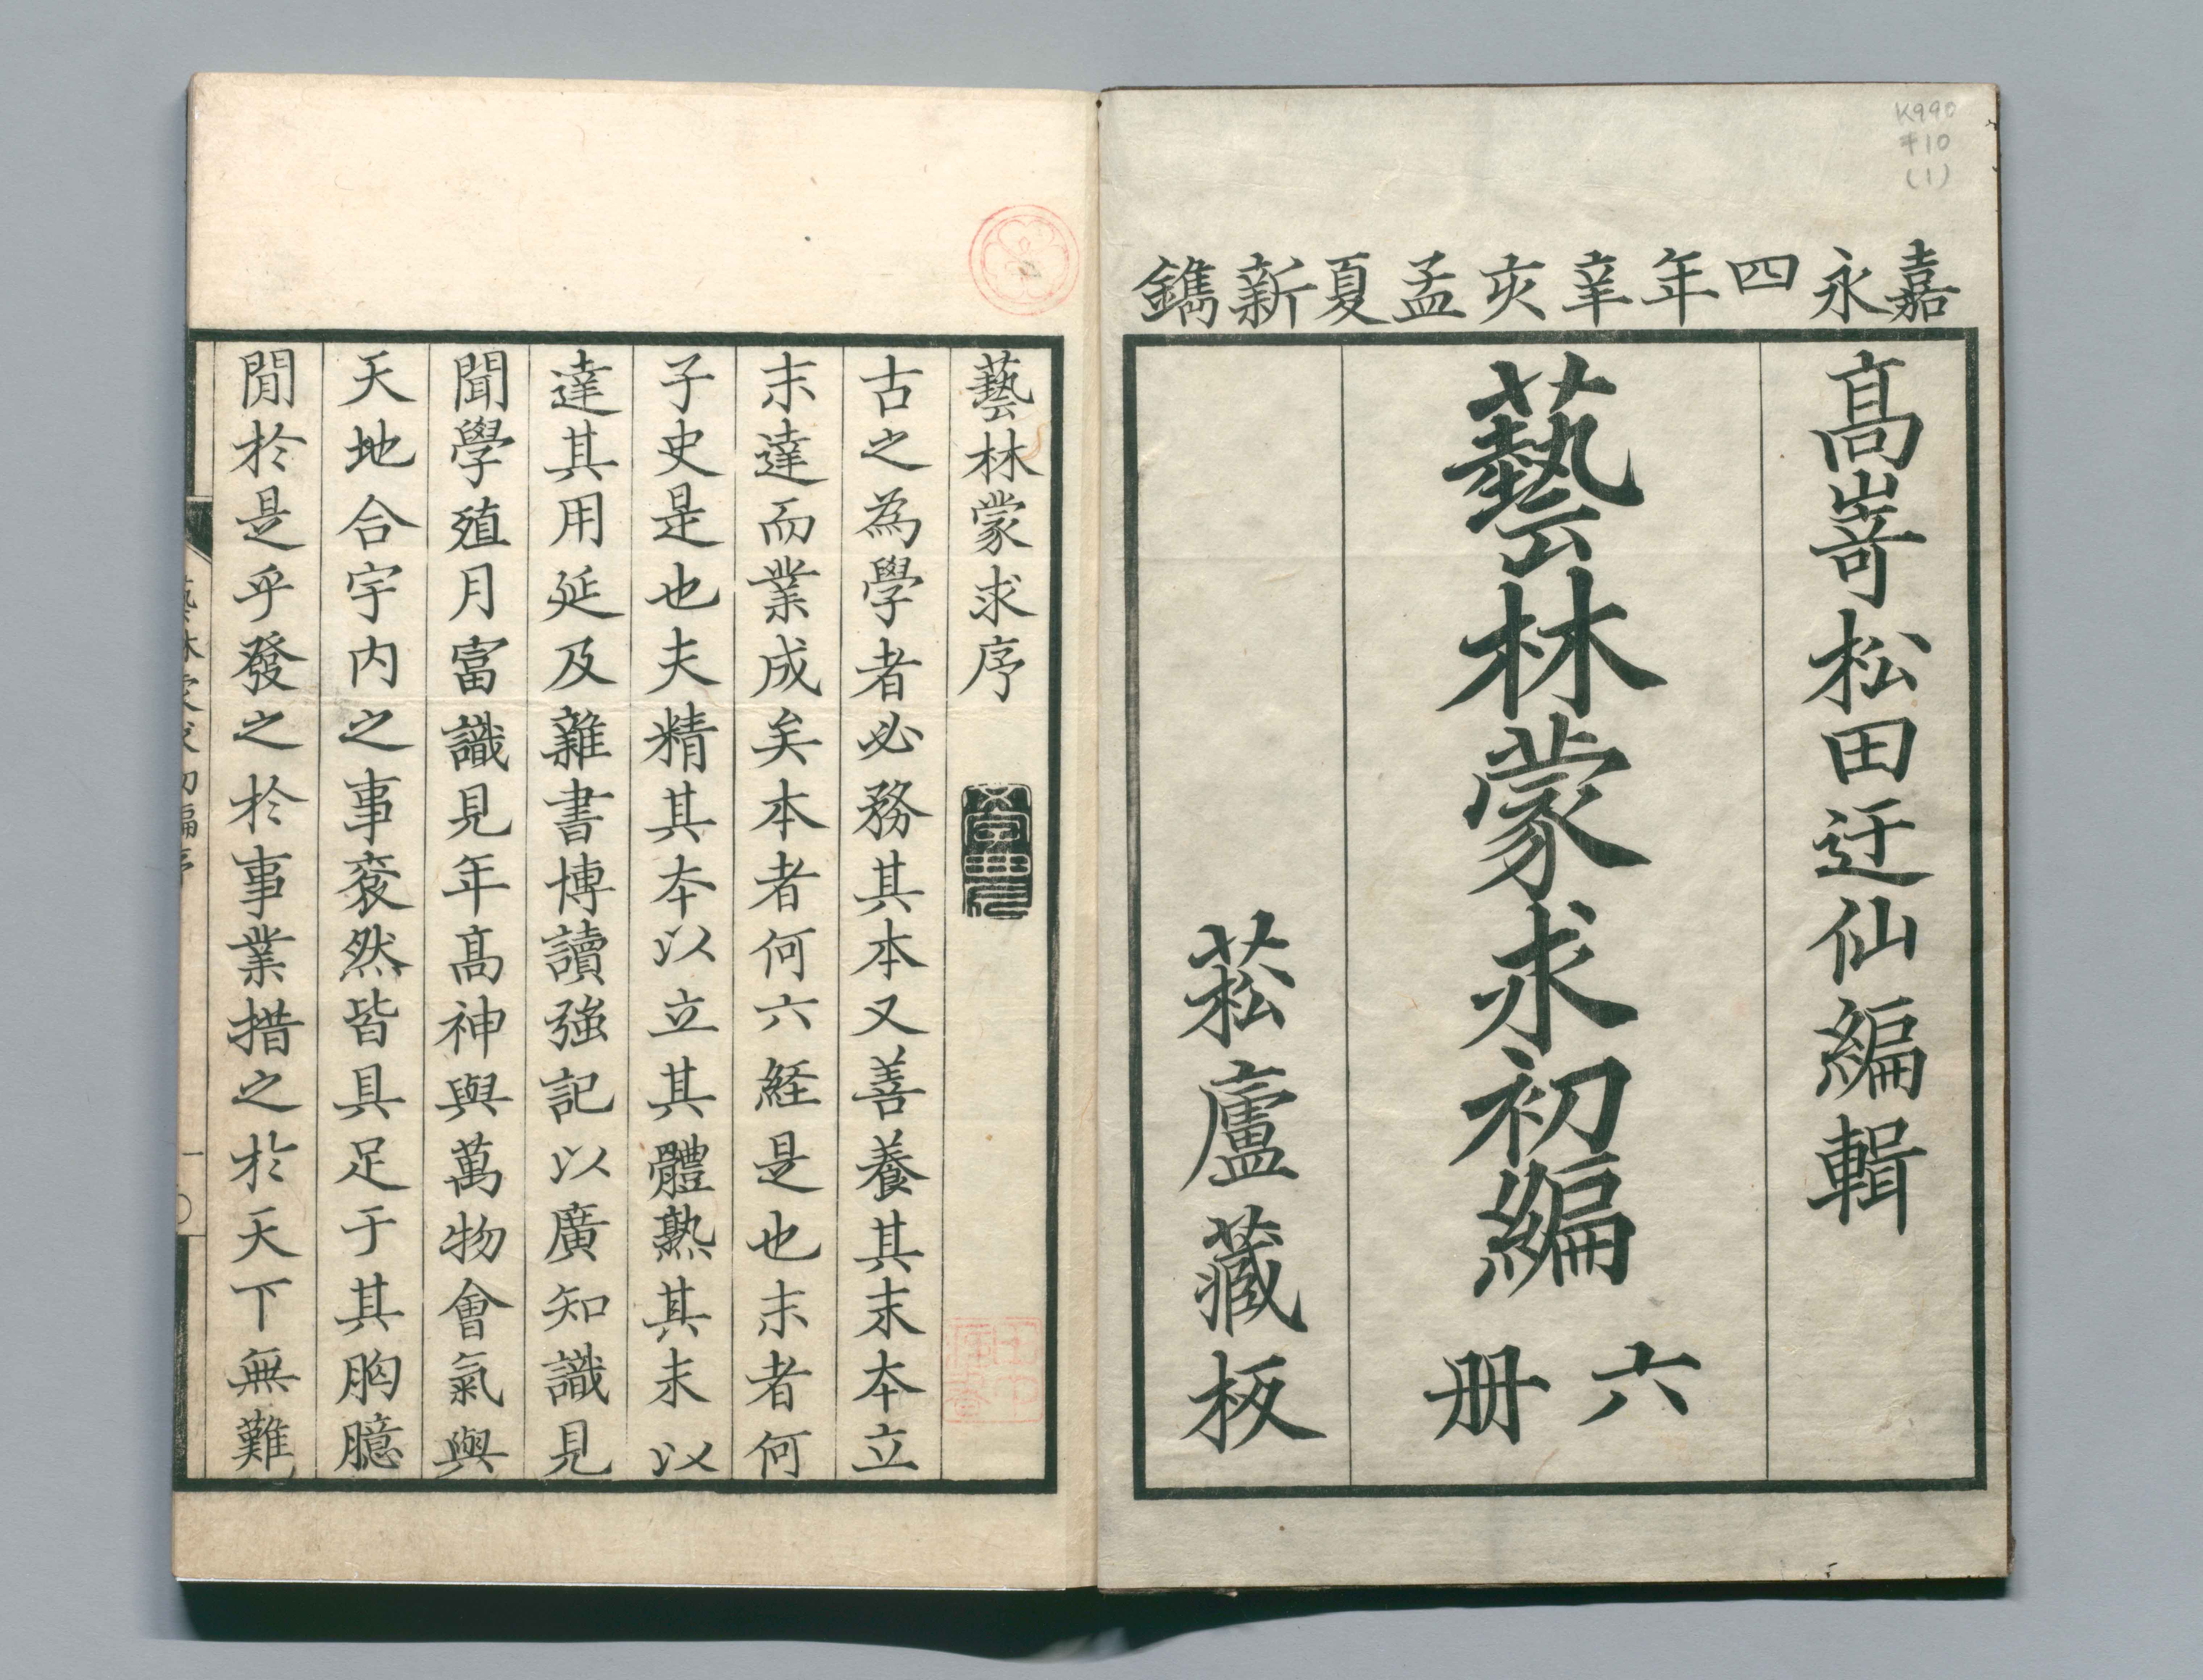 K990
10
(1)
嘉永四年辛亥孟夏新鐫
髙嵜松田迂仙編輯
藝林蒙求初編
六册
菘廬藏板
藝林蒙求序
古之為學者必務其本又善養其末本立
末達而業成矣本者何六経是也末者何
子史是也夫精其本以立其體熟其末以
達其用延及雜書博讀強記以廣知識見
聞學殖月富識見年髙神與萬物會氣與
天地合宇内之事衮然皆具足于其胸臆
閒於是乎發之於事業措之於天下無難
藝林蒙求初編序
一